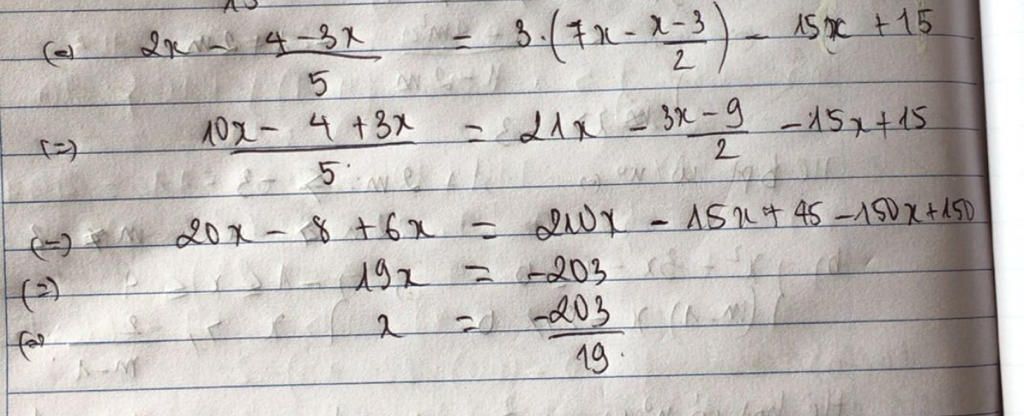 (=) 2x - \frac{4-3x}{5} = 3.(7x - \frac{x-3}{2}) - 15x + 15
(=) \frac{10x - 4 + 3x}{5} = 21x - \frac{3x-9}{2} - 15x + 15
(=) 20x - 8 + 6x = 210x - 15x + 45 - 150x + 150
(=) 19x = -203
(=) x = \frac{-203}{19}.